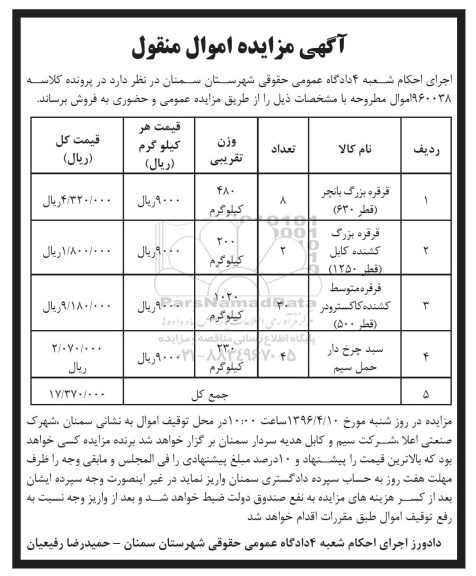 آگهی مزایده اموال منقول
اجرای احکام شعبه ۴دادگاه عمومی حقوقی شهرستان سمنان در نظر دارد در پرونده کلاسه
۹۶۰۰۳۸اموال مطروحه با مشخصات ذیل را از طریق مزایده عمومی و حضوری به فروش برساند.
ردیف نام کالا تعداد وزن تقریبی قیمت هر کیلو گرم (ریال) قیمت کل (ریال)
۱ قرقره بزرگ بانچر (قطر ۶۳۰) ۸ ۴۸۰ کیلوگرم ۹۰۰۰ریال ۴/۳۲۰/۰۰۰ریال
۲ قرقره بزرگ کشنده کابل (قطر ۱۲۵۰) ۲ ۲۰۰ کیلوگرم ۹۰۰۰ریال ۱/۸۰۰/۰۰۰ریال
۳ قرقره‌متوسط کشنده‌کاکسترودر (قطر ۵۰۰) ۳۰ ۱۰۲۰ کیلوگرم ۹۰۰۰ریال ۹/۱۸۰/۰۰۰ریال
۴ سبد چرخ دار حمل سیم ۴ ۲۳۰ کیلوگرم ۹۰۰۰ریال ۲/۰۷۰/۰۰۰ ریال
۵ جمع کل ۱۷/۳۷۰/۰۰۰
ParsNamadData
پایگاه اطلاع رسانی مناقصه و مزایده
۰۲۱-۸۸۳۴۹۶۷۰-۵
مزایده در روز شنبه مورخ ۱۳۹۶/۴/۱۰ساعت ۱۰:۰۰در محل توقیف اموال به نشانی سمنان ،شهرک
صنعتی اعلا ،شرکت سیم و کابل هدیه سردار سمنان بر گزار خواهد شد برنده مزایده کسی خواهد
بود که بالاترین قیمت را پیشنهاد و ۱۰درصد مبلغ پیشنهادی را فی المجلس و مابقی وجه را ظرف
مهلت هفت روز به حساب سپرده دادگستری سمنان واریز نماید در غیر اینصورت وجه سپرده ایشان
بعد از کسر هزینه های مزایده به نفع صندوق دولت ضبط خواهد شد و بعد از واریز وجه نسبت به
رفع توقیف اموال طبق مقررات اقدام خواهد شد
دادورز اجرای احکام شعبه ۴دادگاه عمومی حقوقی شهرستان سمنان – حمیدرضا رفیعیان